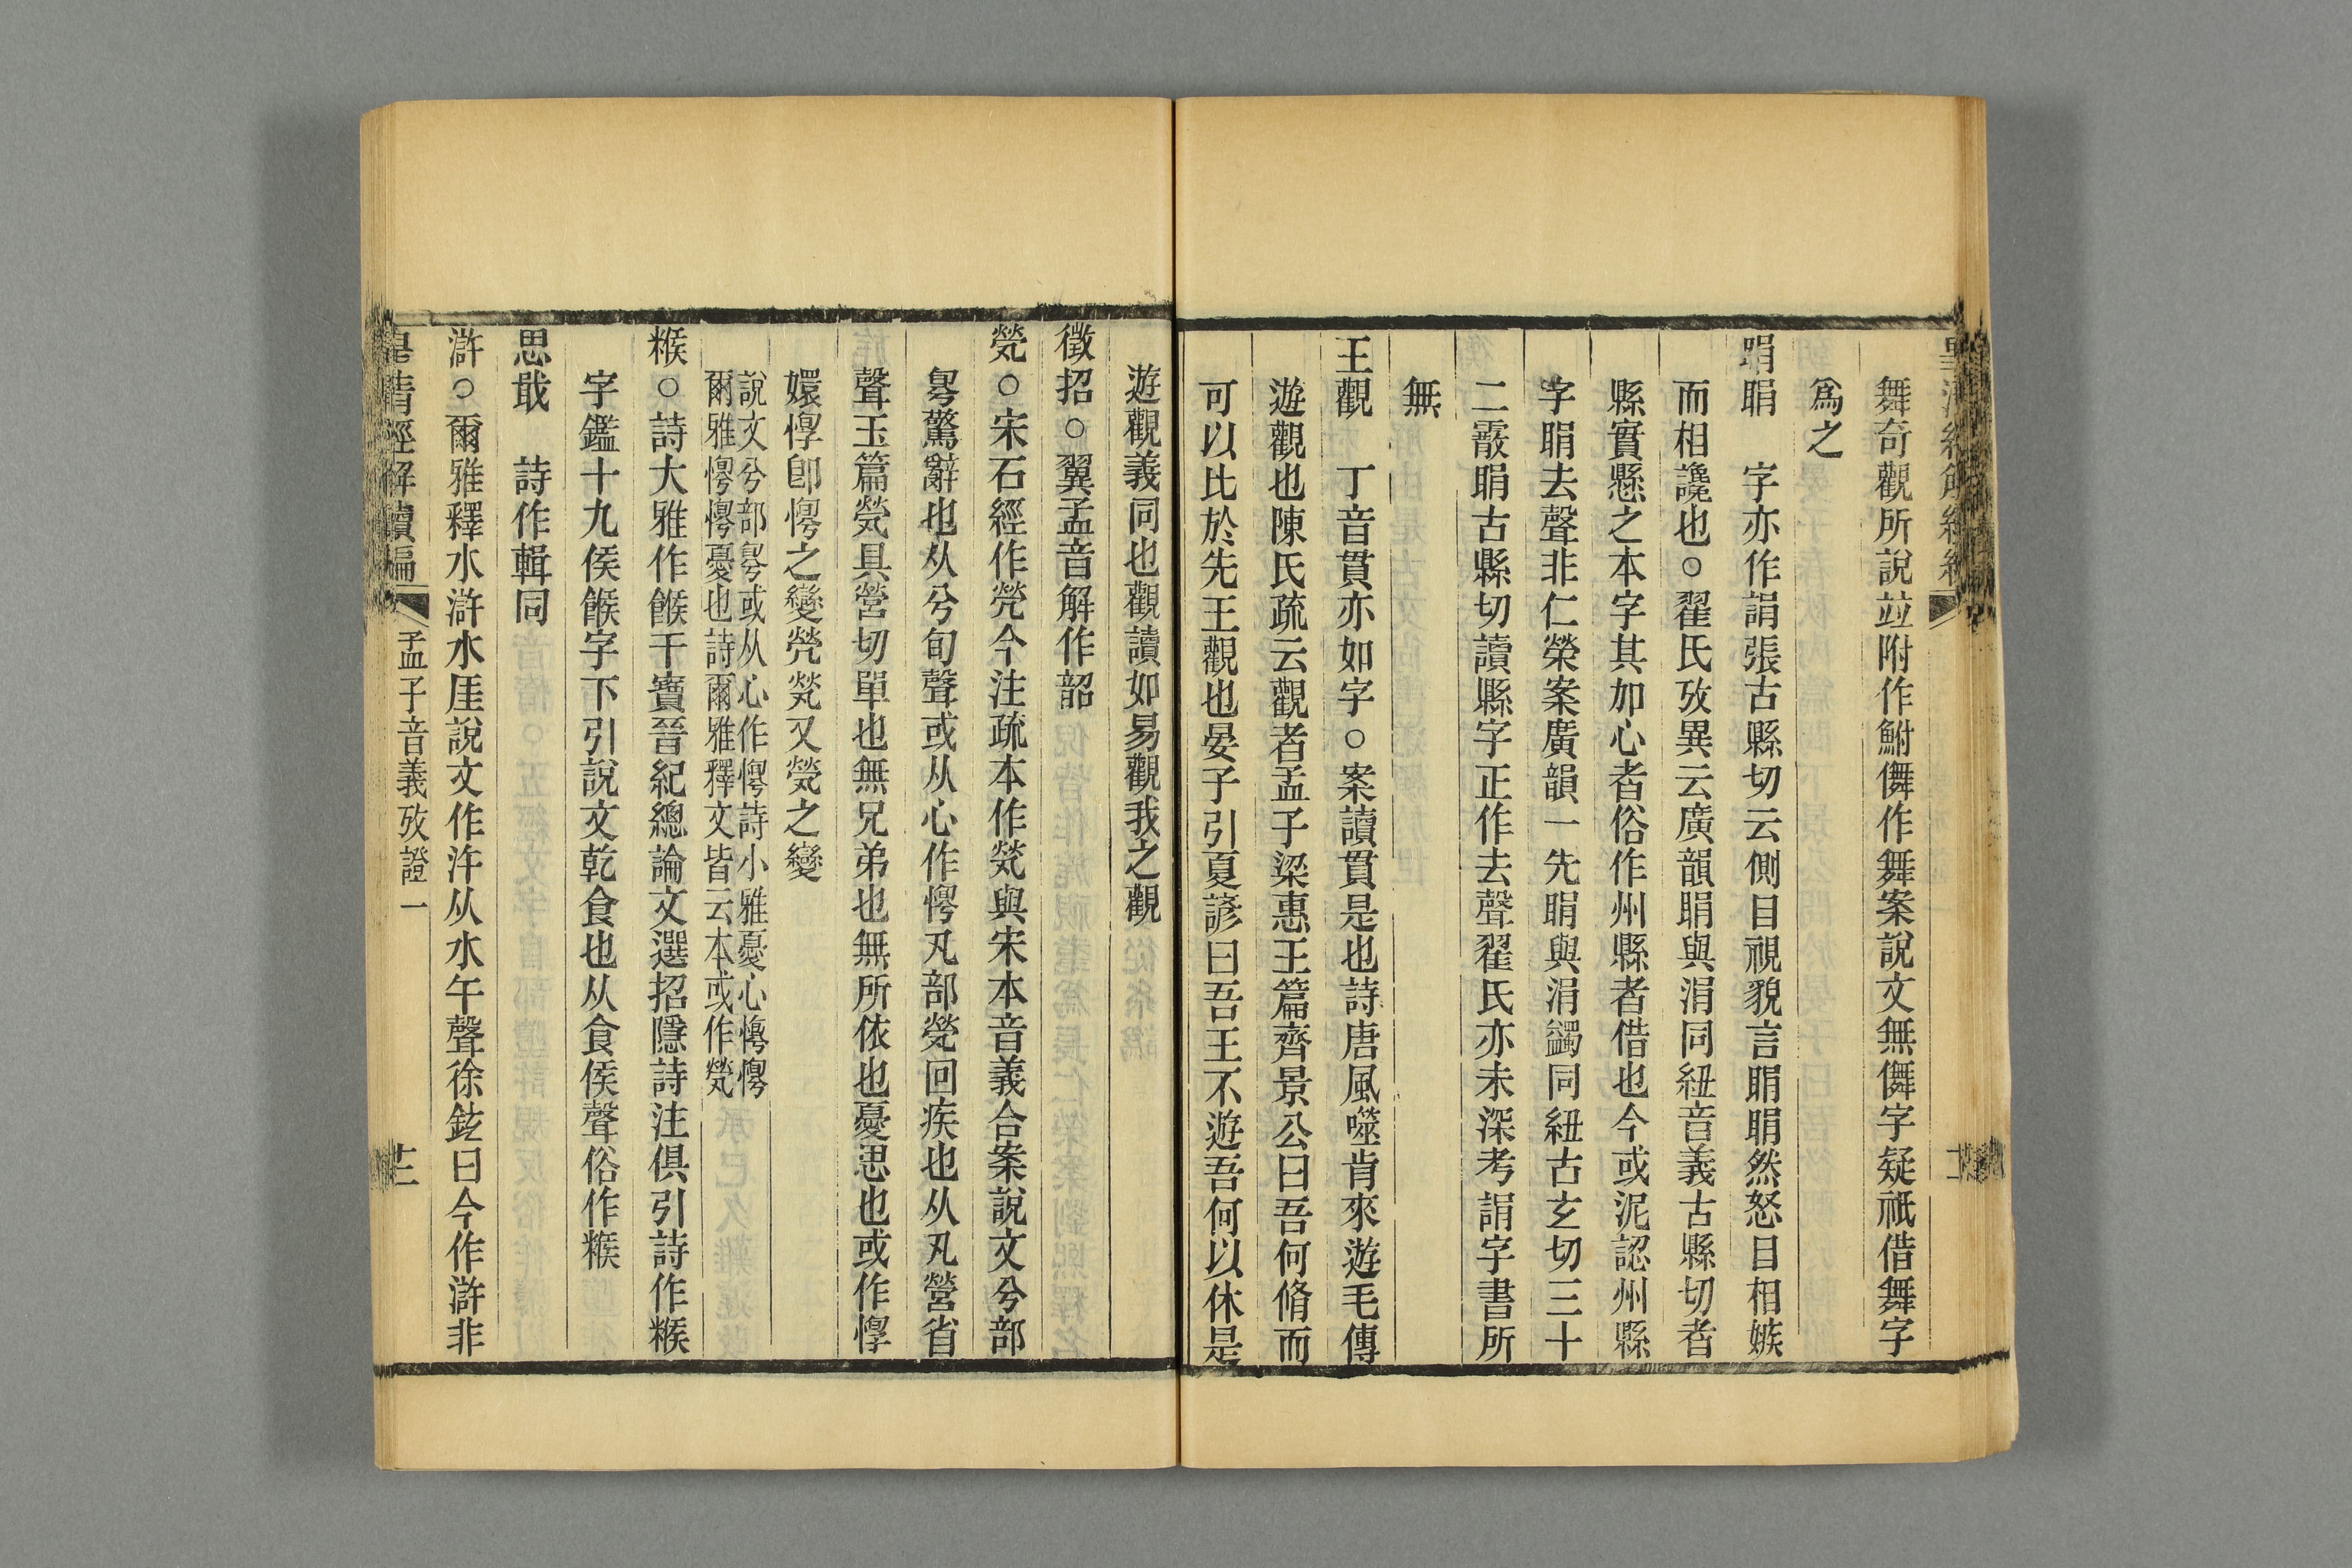 舞奇觀所說竝附作鮒儛作舞案說文無儛字疑祇借舞字
爲之
睊睊　字亦作讂張古縣切云側目視貌言睊睊然怒目相嫉
而相讒也○翟氏攷異云廣韻睊與涓同紐音義古縣切者
縣實懸之本字其加心者俗作州縣者借也今或泥認州縣
字睊去聲非仁榮案廣韻一先睊與涓蠲同紐古玄切三十
二霰睊古縣切讀縣字正作去聲翟氏亦未深考䛓字書所
無
王觀　丁音貫亦如字○案讀貫是也詩唐風噬肯來遊毛傳
遊觀也陳氏疏云觀者孟子梁惠王篇齊景公曰吾何脩而
可以比於先王觀也晏子引夏諺曰吾王不遊吾何以休是
遊觀義同也觀讀如易觀我之觀
徵招○翼孟音解作韶
煢○宋石經作焭今注疏本作煢與宋本音義合案說文兮部
㝁驚辭也从兮旬聲或从心作愕卂部煢回疾也从卂營省
聲玉篇煢具營切單也無兄弟也無所依也憂思也或作惸
嬛惸卽愕之變焭煢又煢之變
說文兮部㝁或从心作愕詩小雅憂心愕愕
爾雅愕愕憂也詩爾雅釋文皆云本或作煢
糇○詩大雅作餱干寶晉紀總論文選招隱詩注俱引詩作糇
字鑑十九侯餱字下引說文乾食也从食侯聲俗作糇
思戢　詩作輯同
滸○爾雅釋水滸水厓說文作汻从水午聲徐鉉曰今作滸非
皇淸經解續編　孟子音義攷證一